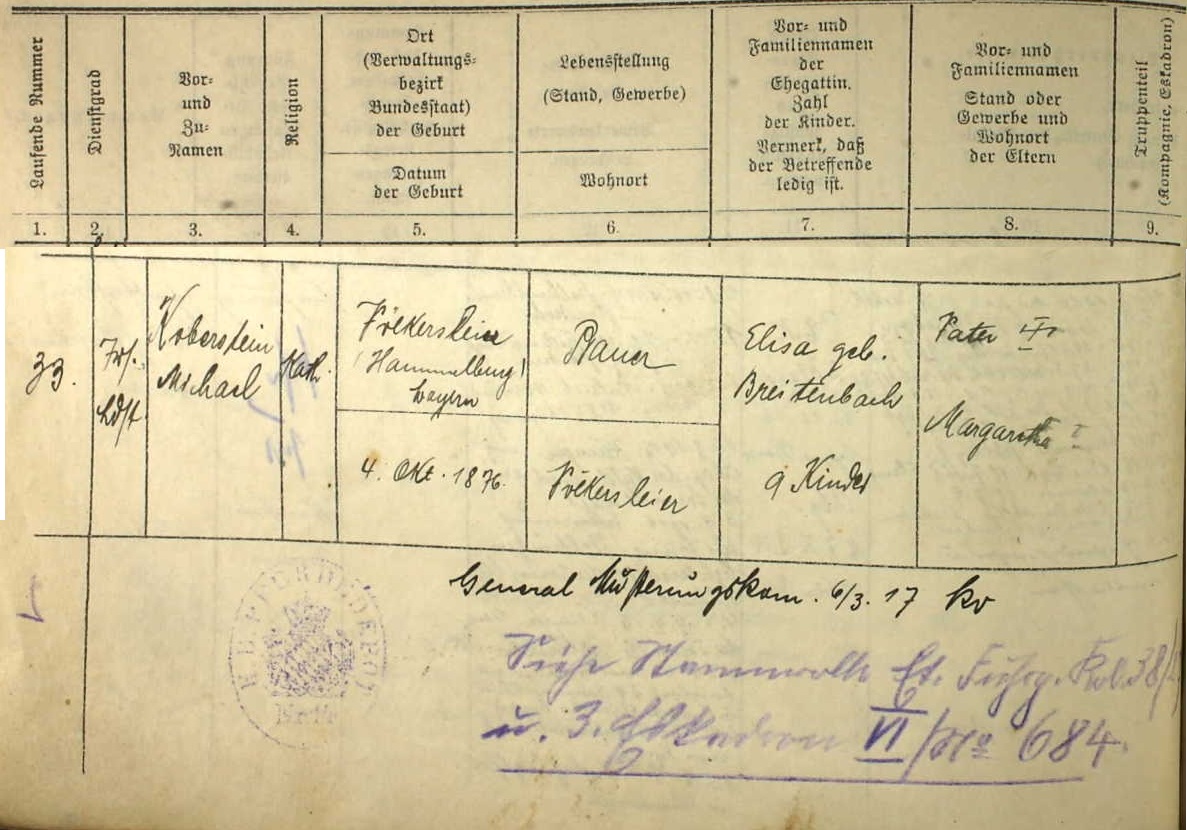 Laufende Nummer
Dienstgrad
Vor-
und
Zu-
Namen
Religion
Ort
(Verwaltungs-
bezirk
Bundesstaat)
der Geburt
Datum
der Geburt
Lebensstellung
(Stand, Gewerbe)
Wohnort
Vor- und
Familiennamen
der
Ehegattin.
Zahl
der Kinder.
Vermerk, daß
der Betreffende
ledig ist.
Vor- und
Familiennamen
Stand oder
Gewerbe und
Wohnort
der Eltern
Truppenteil
(Kompagnie, Eskadron)
1. 2. 3. 4. 5. 6. 7. 8. 9.
33.
Ldst
Koberstein
Michael
Kath.
Völkersleier
(Hammelburg)
Bayern
4. Okt. 1876.
Bauer
Völkersleier
Elisa geb.
Breitenbach
9 Kinder
Vater
Margaretha
General Musterungskom. 6/3. 17 kv
PFERDEDEPOT
Siehe Stammrolle
u. 3. Eskadron VI/No 684.